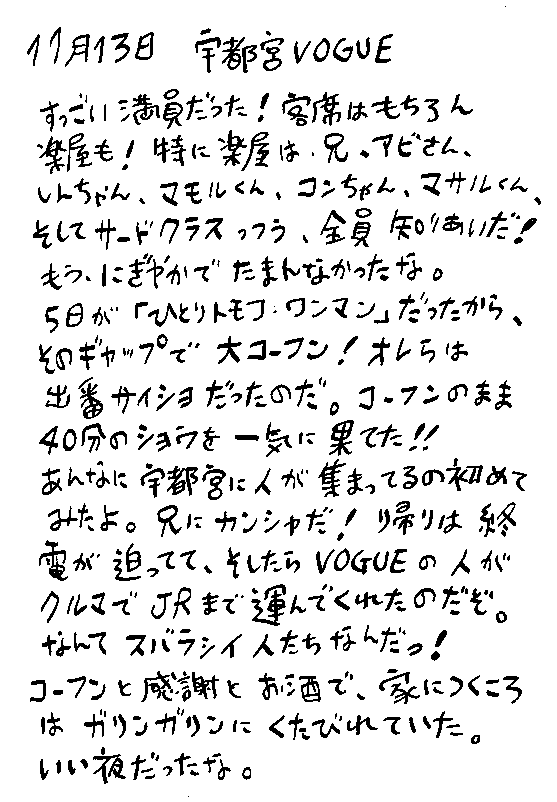 11月13日 宇都宮VOGUE
すっごい満員だった！客席はもちろん
楽屋も！特に楽屋は、兄、アビさん、
しんちゃん、マモルくん、コンちゃん、マサルくん、
そしてサードクラスっつう、全員知りあいだ！
もう、にぎやかでたまんなかったな。
5日が「ひとりトモフ・ワンマン」だったから、
そのギャップで大コーフン！オレらは
出番サイショだったのだ。コーフンのまま
40分のショウを一気に果てた!!
あんなに宇都宮に人が集まってるの初めて
みたよ。兄にカンシャだ！帰りは終
電が迫ってて、そしたらVOGUEの人が
クルマでJRまで運んでくれたのだぞ。
なんてスバラシイ人たちなんだっ！
コーフンと感謝とお酒で、家につくころ
はガリンガリンにくたびれていた。
いい夜だったな。